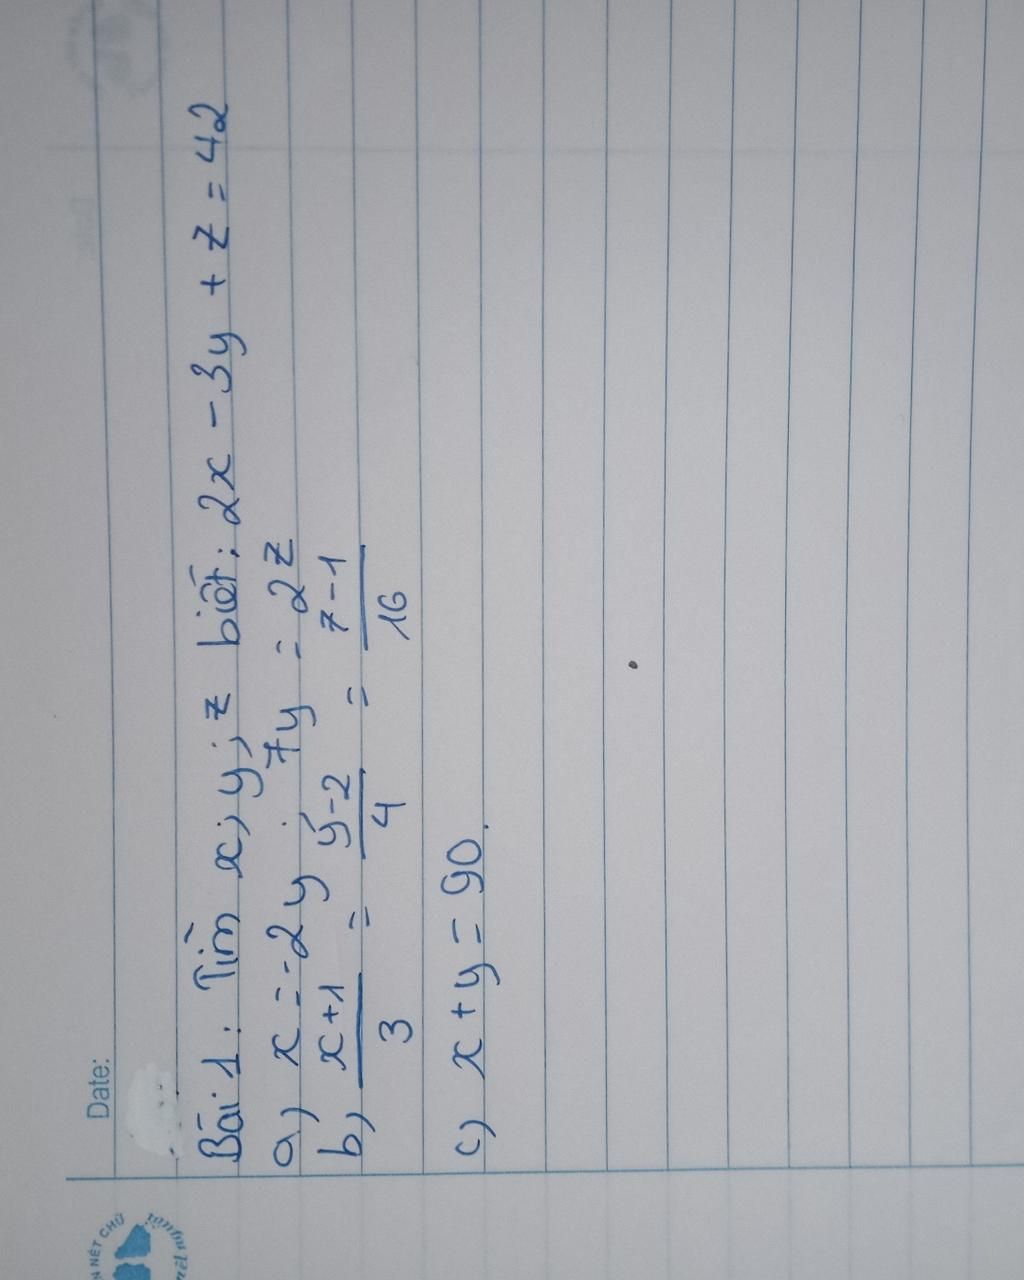 Date:
N NÉT CHỮ
nết người
Bài 1: Tìm x; y; z biết: 2x - 3y + z = 42
a) x = -2y; 7y = 2z
b) x+1/3 = y-2/4 = z-1/16
c) x + y = 90.